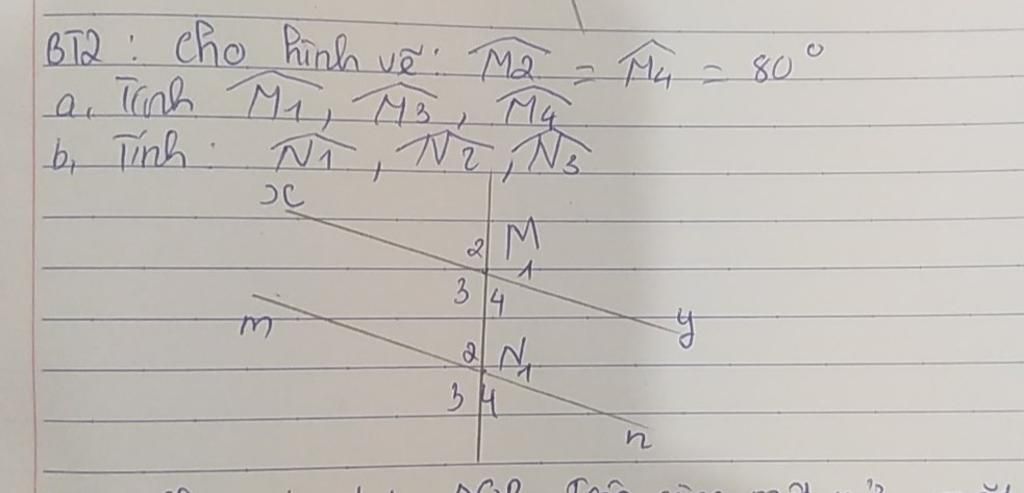 BT2: Cho hình vẽ: M̂2 = M̂4 = 80°
a, Tính M̂1, M̂3, M̂4
b, Tính: N̂1, N̂2, N̂3
x
2 M
1
3 4
m
y
2 N
1
3 4
n